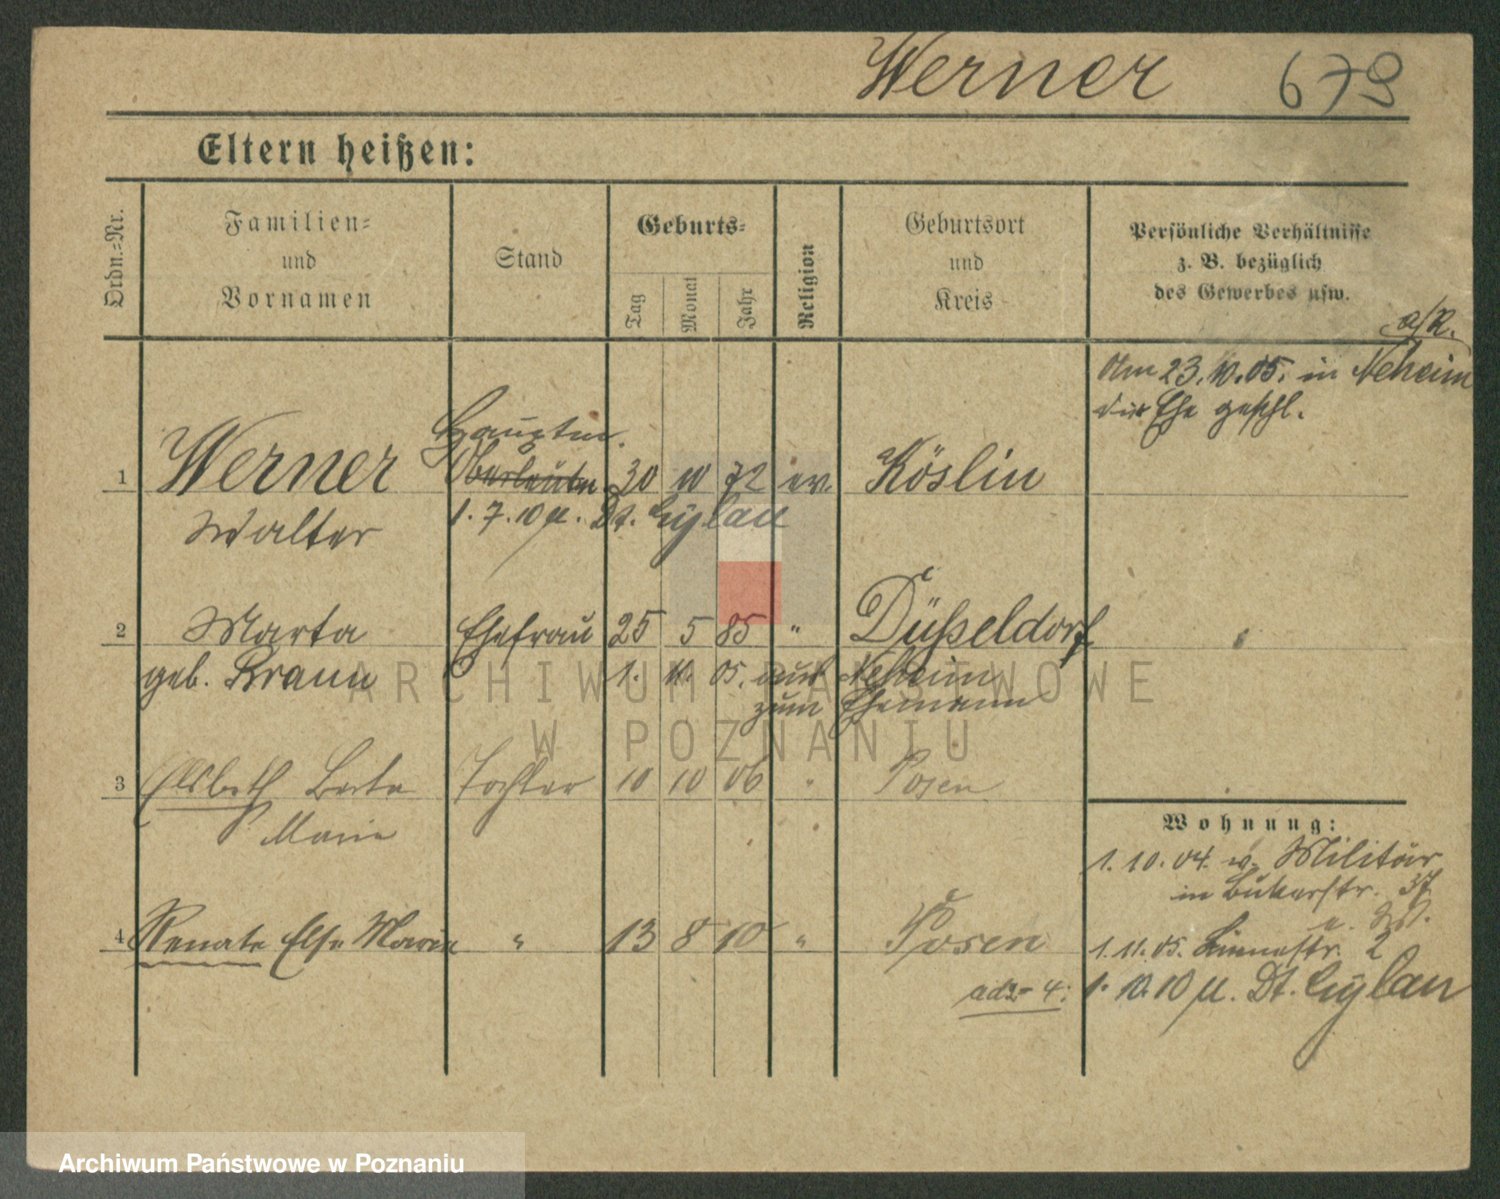 Werner 679
Eltern heißen:
Ordn.=Nr.
Familien=
und
Vornamen
Stand
Geburts=
Tag
Monat
Jahr
Religion
Geburtsort
und
Kreis
Persönliche Verhältnisse
z. B. bezüglich
des Gewerbes usw.
a/R.
Am 23.10.05. in Neheim
die Ehe geschl.
Hauptm.
1 Werner Oberleutn. 30 10 72 ev. Köslin
Walter 1.7.10 Dt. Eylau
2 Marta Ehefrau 25 5 85 " Düsseldorf
geb. Braun 1. 11. 05. aus Neheim
zum Ehemann
3 Elsbeth Berta Tochter 10 10 06 " Posen
Marie
4 Renate Else Marie " 13 8 10 " Posen
ad 2-4:
Wohnung:
1.10.04. v. Militär
in Bukerstr. 37
1.11.05. Linnestr. 2
1.10.10 Dt. Eylau
ARCHIWUM PAŃSTWOWE
W POZNANIU
Archiwum Państwowe w Poznaniu